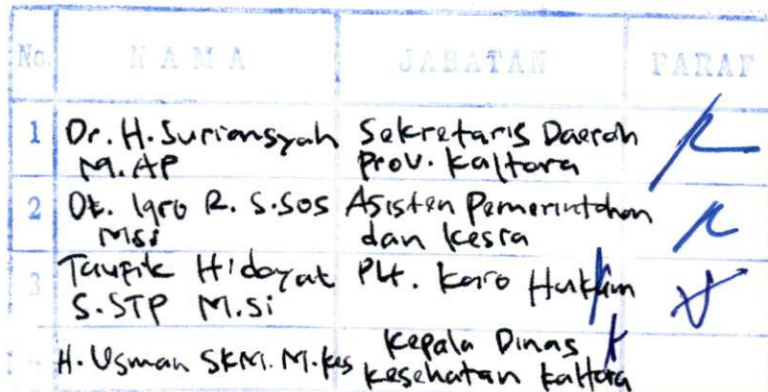 No. NAMA JABATAN PARAF
1 Dr. H. Suriansyah Sekretaris Daerah
M.AP Prov. Kaltara
2 Dt. Iqro R. S.Sos Asisten Pemerintahan
Msi dan Kesra
3 Taupik Hidayat Plt. Karo Hukum
S.STP M.Si
H. Usman SKM. M.Kes Kepala Dinas
Kesehatan Kaltara